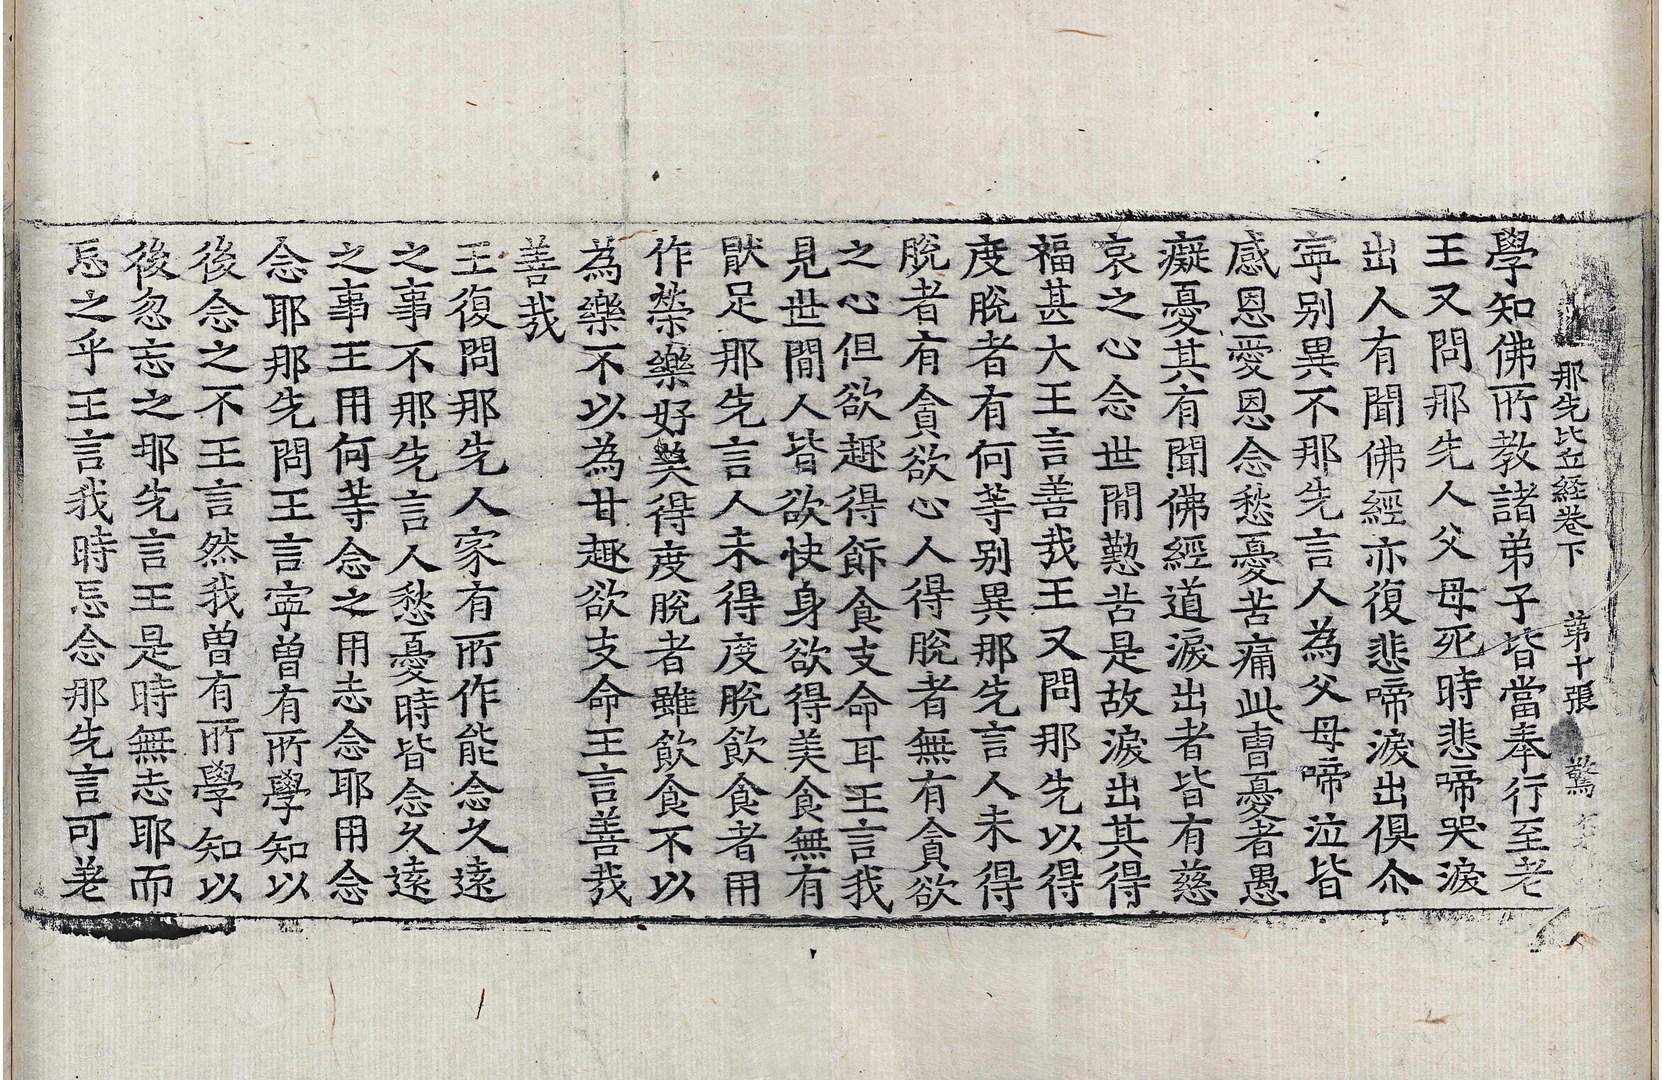 那先比丘経卷下　第十張　驚
學知佛所教諸弟子皆當奉行至老
王又問那先人父母死時悲啼哭淚
出人有聞佛經亦復悲啼淚出俱尒
寧別異不那先言人為父母啼泣皆
感恩愛恩念愁憂苦痛此曺憂者愚
癡憂其有聞佛經道淚出者皆有慈
哀之心念世閒懃苦是故淚出其得
福甚大王言善哉王又問那先以得
度脫者有何等別異那先言人未得
脫者有貪欲心人得脫者無有貪欲
之心但欲趣得飾食支命耳王言我
見世閒人皆欲快身欲得美食無有
猒足那先言人未得度脫飲食者用
作榮樂好美得度脫者雖飲食不以
為樂不以為甘趣欲支命王言善哉
善哉
王復問那先人家有所作能念久遠
之事不那先言人愁憂時皆念久遠
之事王用何等念之用志念耶用念
念耶那先問王言寧曾有所學知以
後念之不王言然我曾有所學知以
後忽忘之耶先言王是時無志耶而
忘之乎王言我時忘念那先言可差